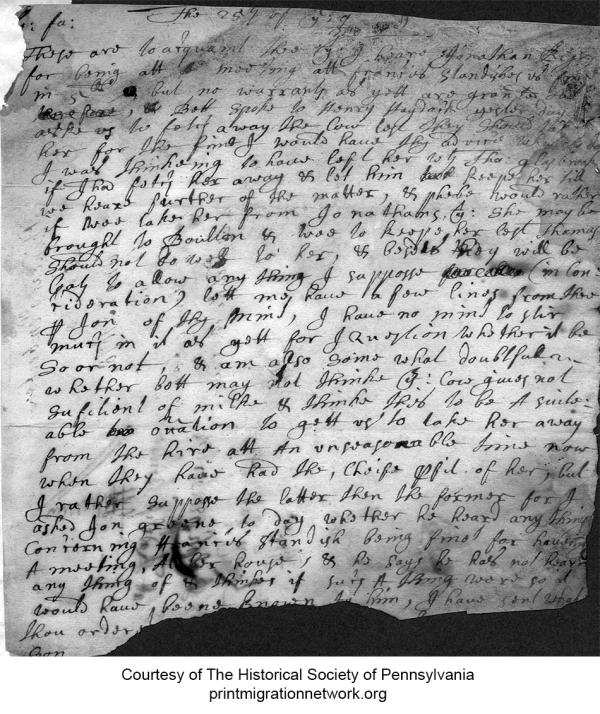 : fa: The 25th of
These are to acquaint thee yt I heare Jonathan
for being att a meeting att
in but no warrants as yett are granted
& Bett spoke to Henry yesterday
us to fetch away the Cow lest they should
her for the fine I would have thy advice
I was thinkeing to have left her wth
if I had fetch her away & let him keepe her till
we heare further of the matter, & phebe would rather
if wee take her from Jonathans, yt she may be
brought to Boulton & wee to keepe her lest Thomas
should not do well to her, & besides they will be
to allow any thing I suppose (in Con-
sideration) lett me have a few lines from thee
Jon of thy mind, I have no mind to stir
much in it as yett for I Question whether it be
so or not, & am also some what doubtfull
whether bett may not thinke yt Cow gives not
sufficient of milke & thinke this to be A suite-
able to gett us to take her away
from the hire att An unseasonable time now
when they have had the Cheife of her; but
I rather suppose the latter then the former for I
asked Jon greene to day whether he heard any thing
Concerning Standish being fined for haveing
A meeting, At her house & he says he has not heard
any thing of & thinkes if such A thing were so it
would have beene known to him, I have sent what
thou ordered
Courtesy of The Historical Society of Pennsylvania
printmigrationnetwork.org